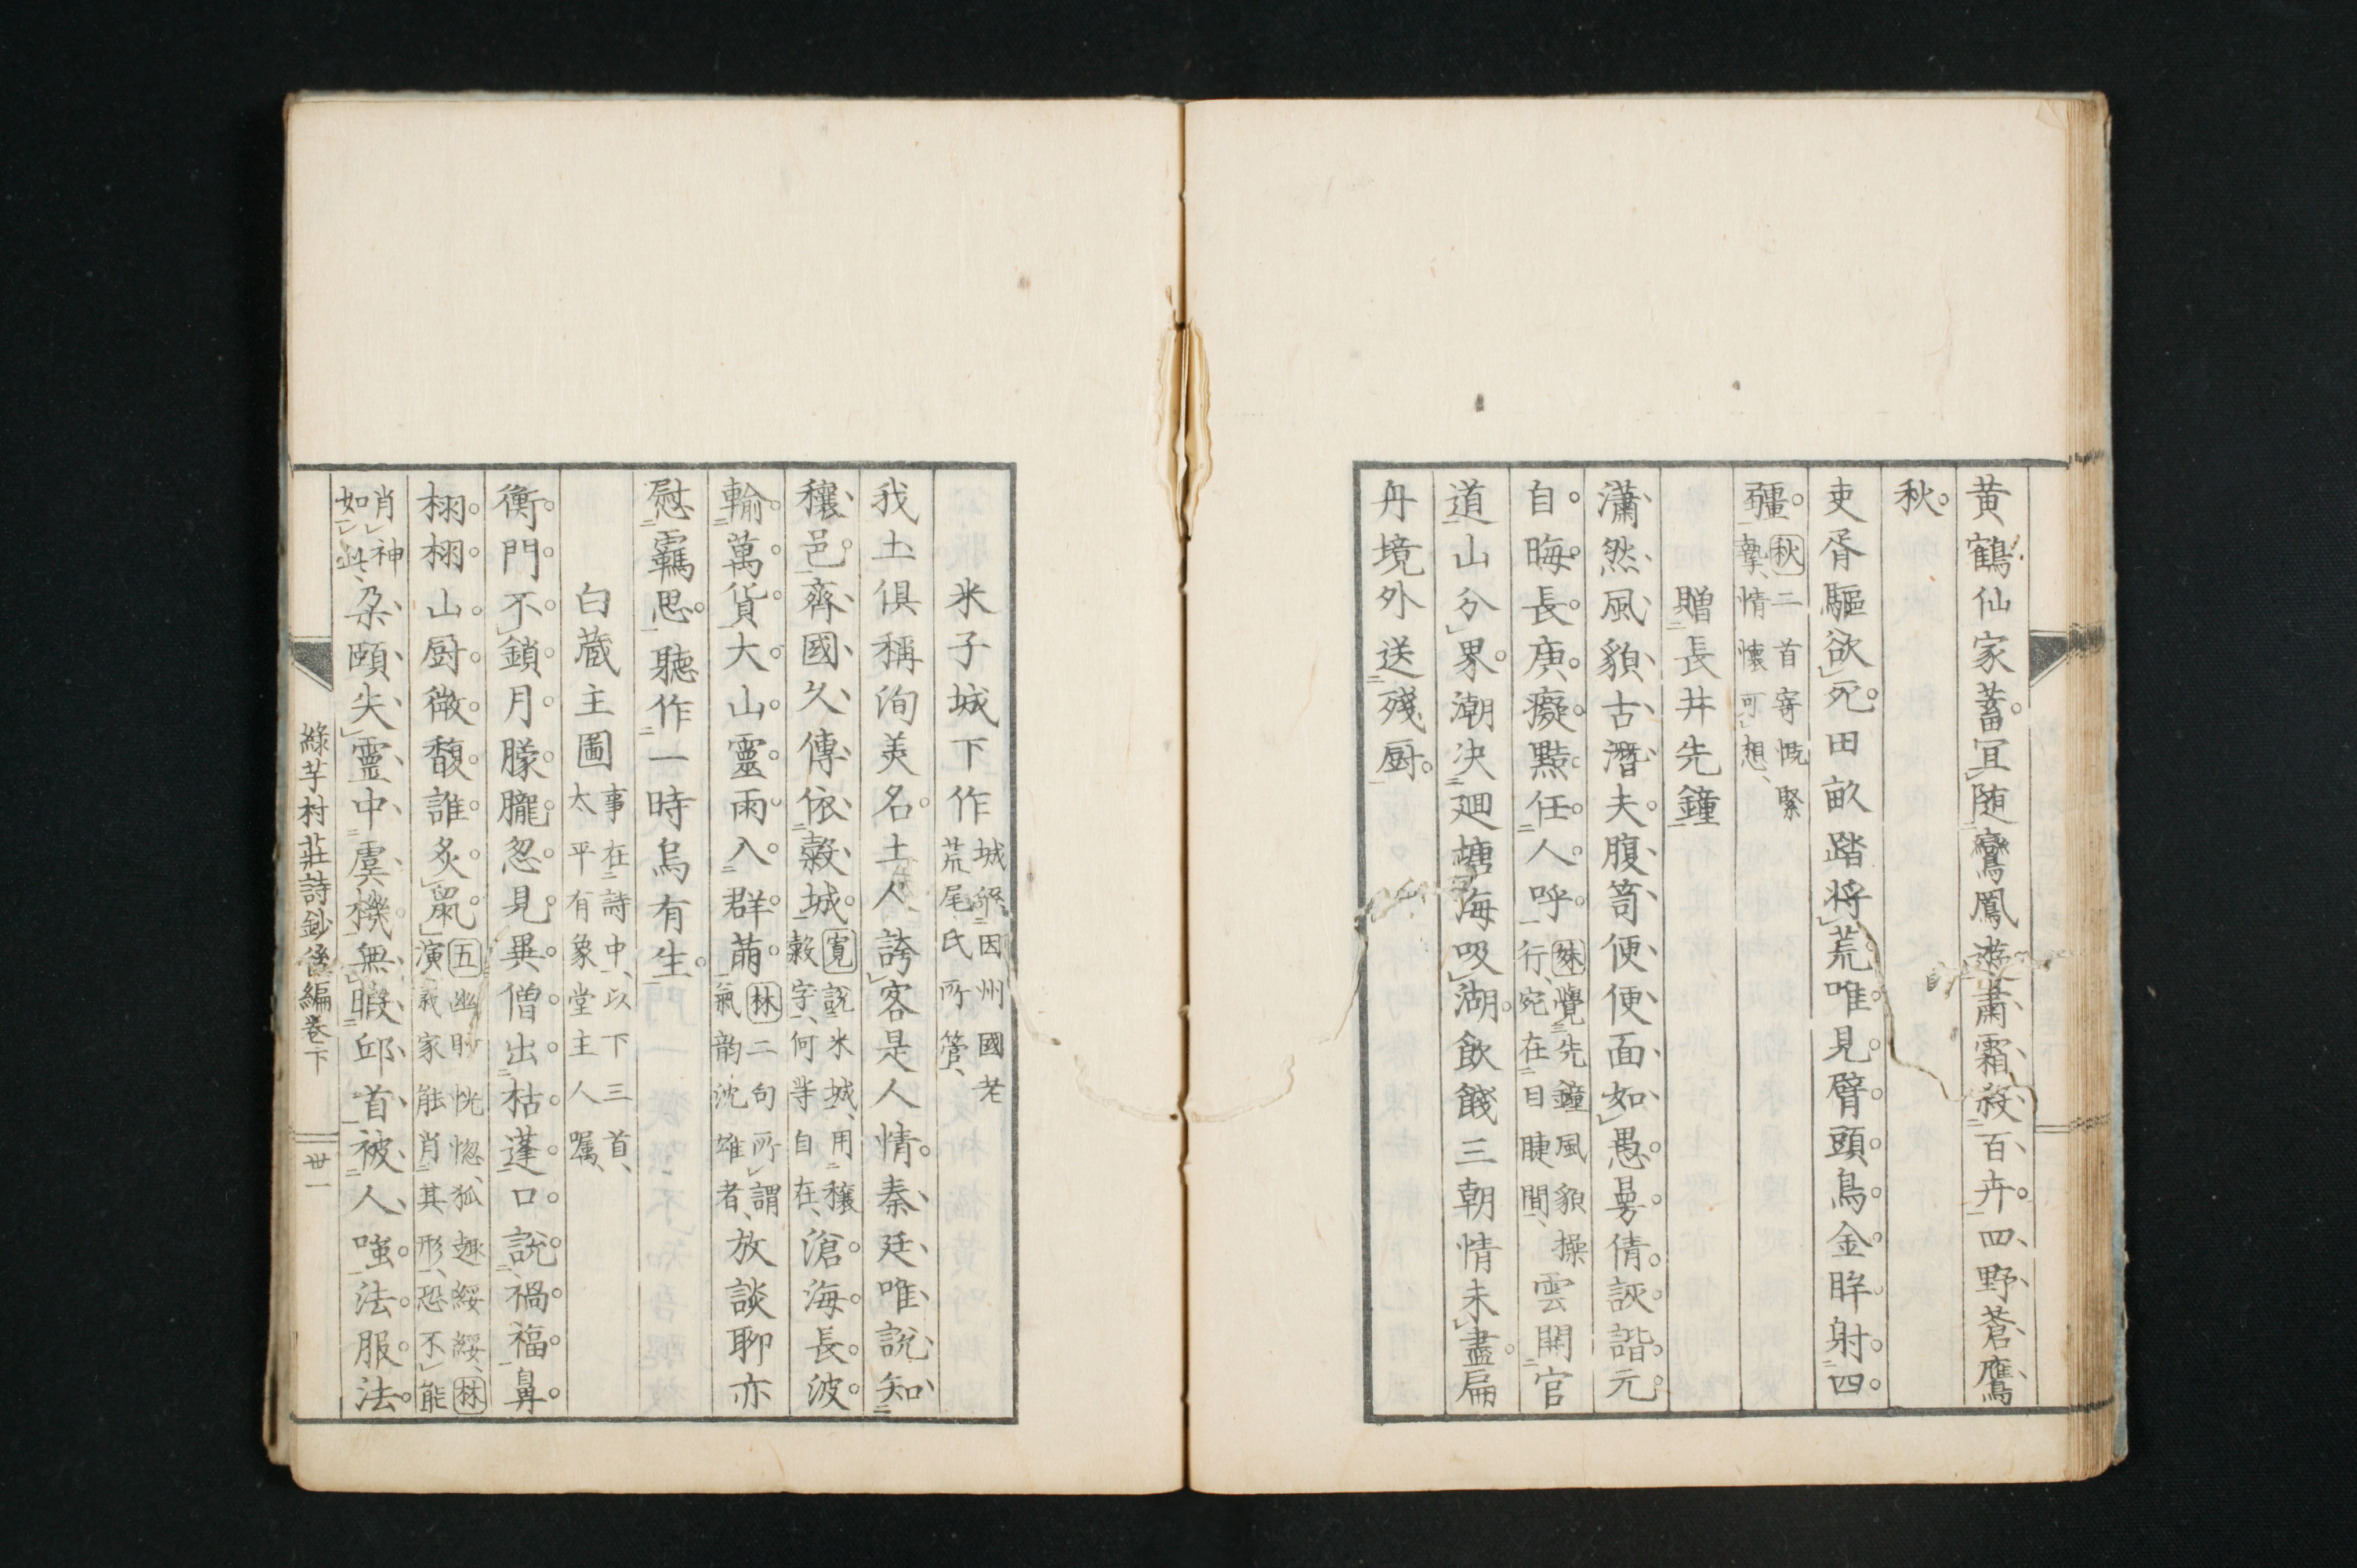 黄鶴仙家蓄冝随鸞鳳遊肅霜殺百卉四野蒼鷹
秋
吏胥驅欲死田畝踏將荒唯見臂頭鳥金眸射四
疆 秋二首寄慨緊
摯情懷可想
贈長井先鐘
瀟然風貌古潛夫腹笥便便面如愚曼倩詼諧元
自晦長庚癡黠任人呼 林覺先鐘風貌操
行宛在目睫間 雲開官
道山分界潮決廻塘海吸湖飲餞三朝情未盡扁
舟境外送殘厨
米子城下作 城緜因州國老
荒尾氏所管
我土俱稱洵美名土人誇客是人情秦廷唯説知
穰邑齊國久傳依穀城 寛説米城用穰
穀字何等自在 滄海長波
輸萬貨大山靈雨入群萠 林二句所謂
氣韵沈雄者 放談聊亦
慰羈思聽作一時烏有生
白蔵主圖 事在詩中以下三首
太平有象堂主人囑
衡門不鎖月朦朧忽見異僧出枯蓬口説禍福鼻
栩栩山厨微馥誰炙鼠 五幽眇恍惚狐趣綏綏 林
演義家能肖其形恐不能
肖神
如此 朶頤失靈中虞機無暇邱首被人嗤法服法
綠芋村莊詩鈔後編卷下
丗一